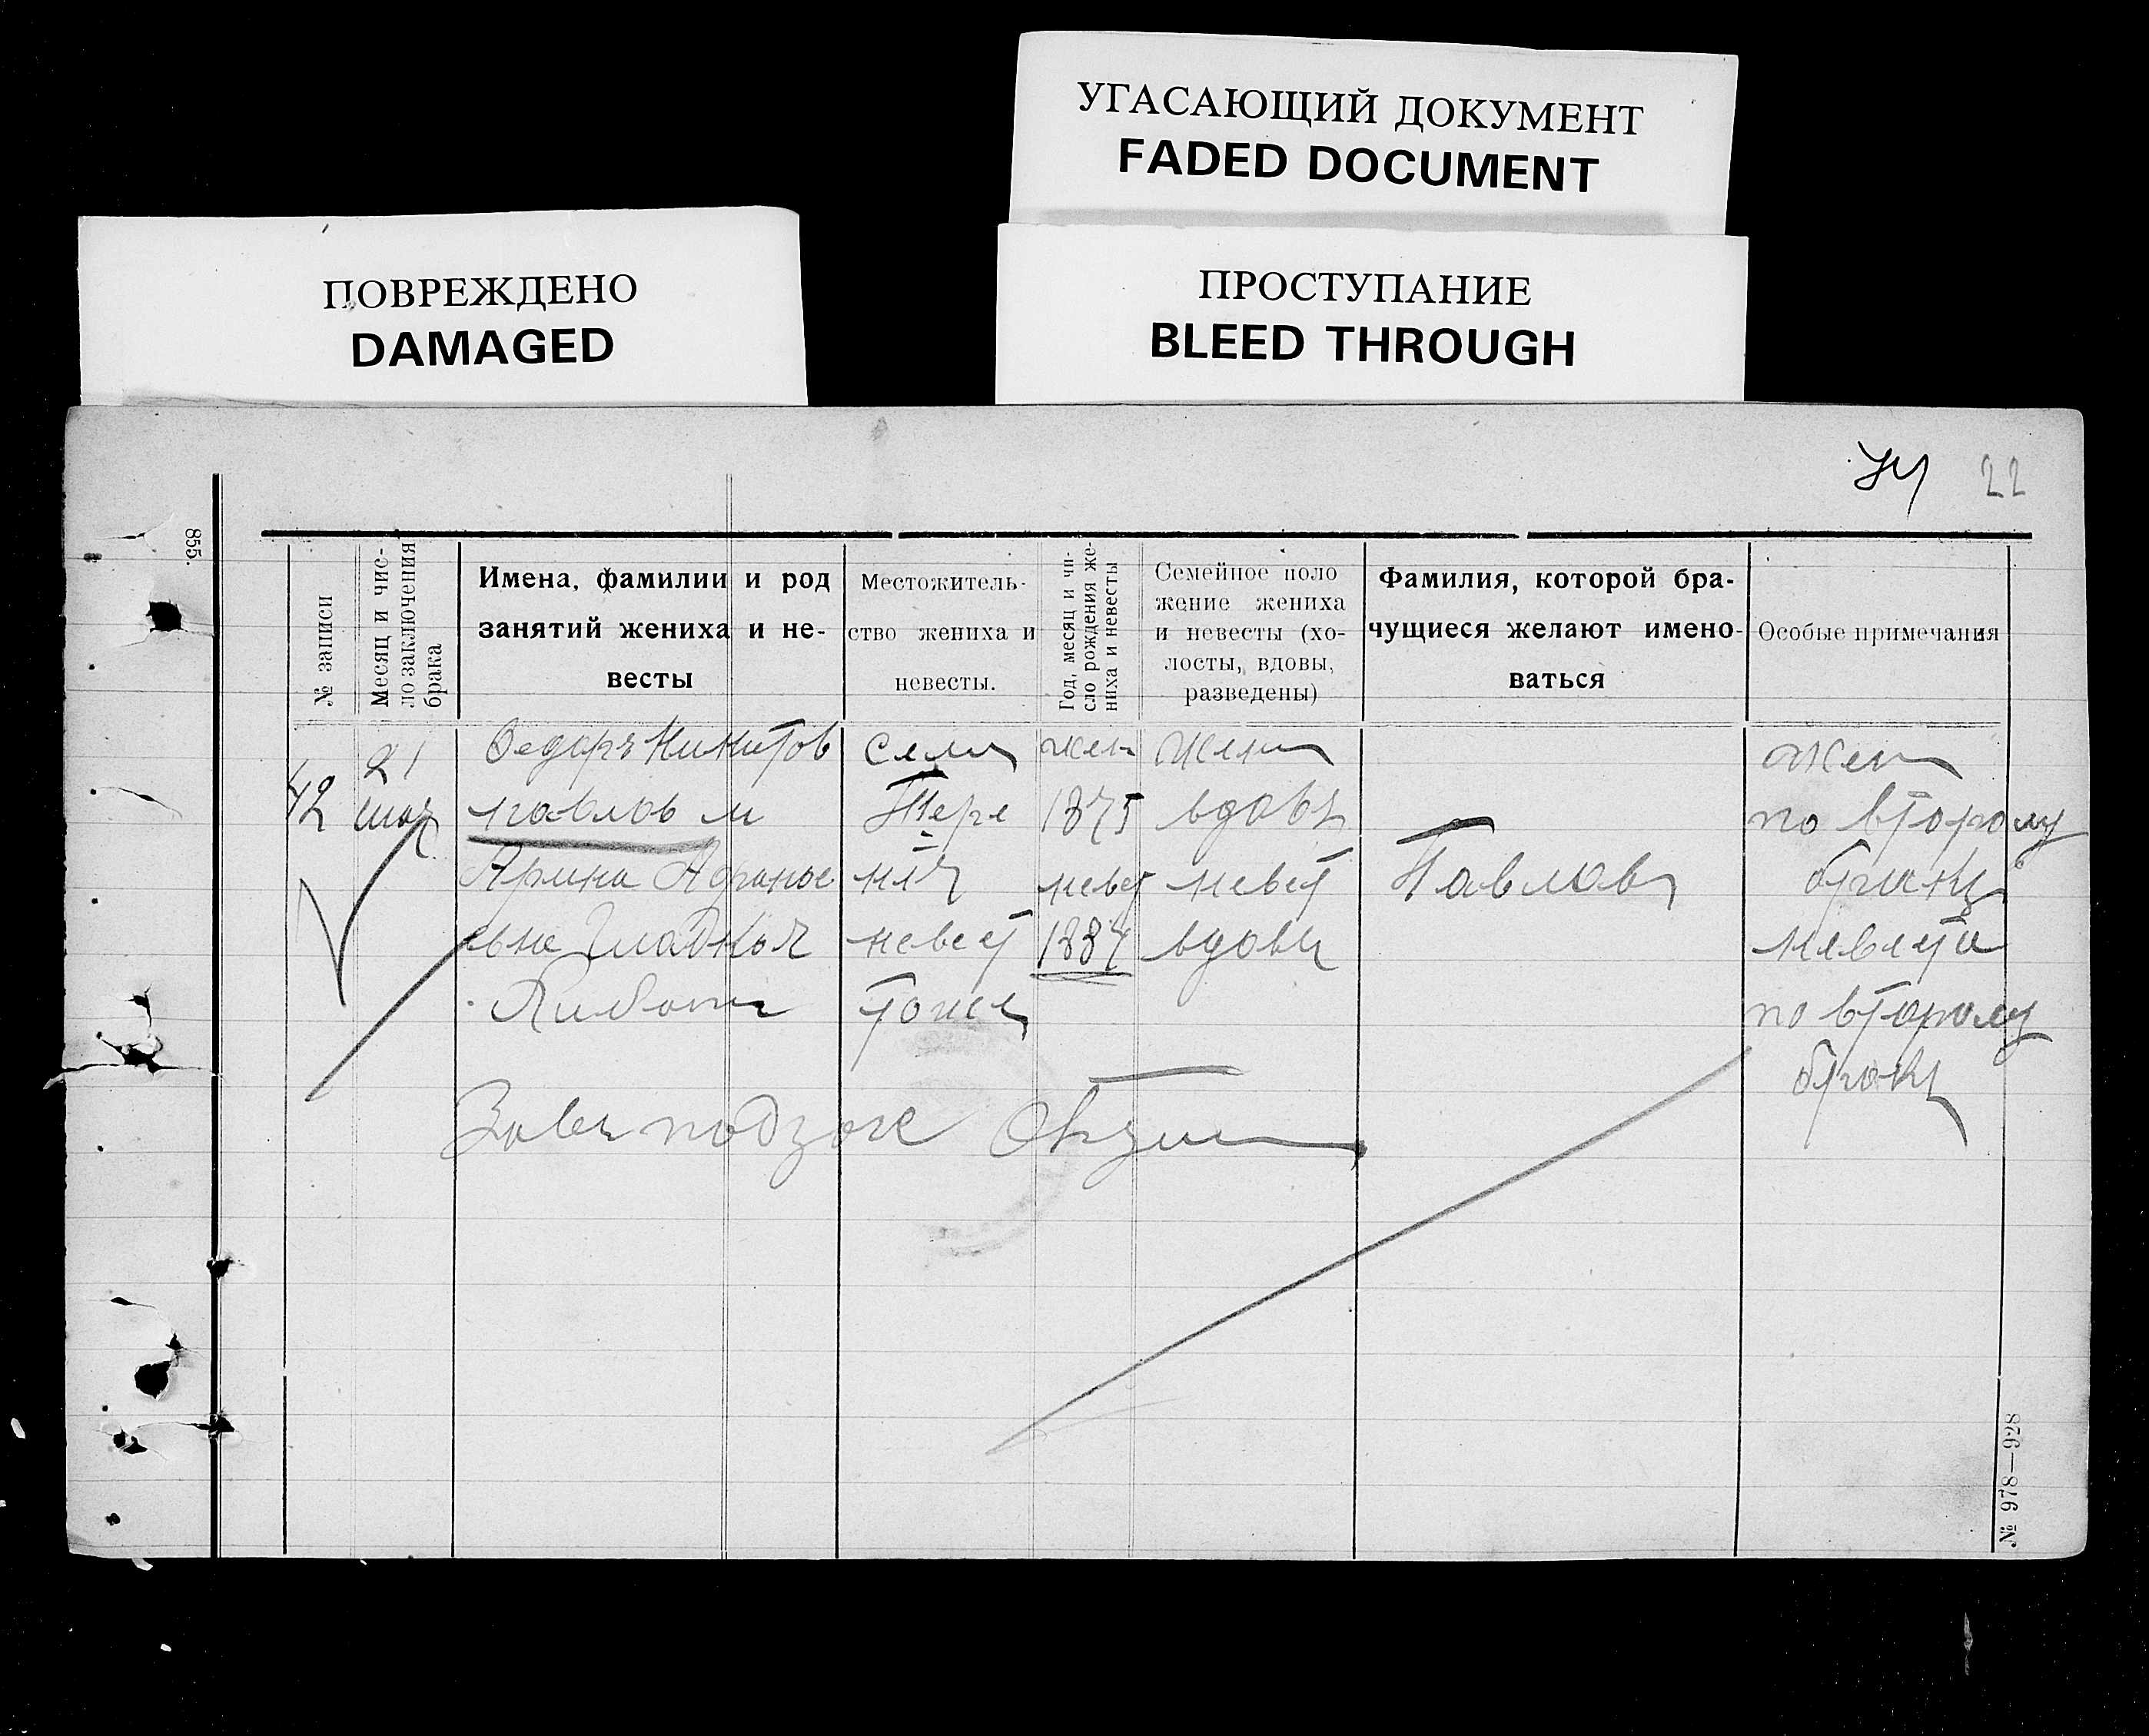 УГАСАЮЩИЙ ДОКУМЕНТ
FADED DOCUMENT
ПОВРЕЖДЕНО
DAMAGED
ПРОСТУПАНИЕ
BLEED THROUGH
22
855.
№ записи
Месяц и чис-
ло заключения
брака
Имена, фамилии и род
занятий жениха и не-
весты
Местожитель-
ство жениха и
невесты.
Год, месяц и чи-
сло рождения же-
ниха и невесты
Семейное поло
жение жениха
и невесты (хо-
лосты, вдовы,
разведены)
Фамилия, которой бра-
чущиеся желают имено-
ваться
Особые примечания
42
21
Федоръ Никитов
павлов
Арина
жен
1875
невес
1884
жен
вдовъ
невест
вдова
Павлов
жен
по второму
браку
невеста
по второму
браку
Зав подзаг
№ 978—928